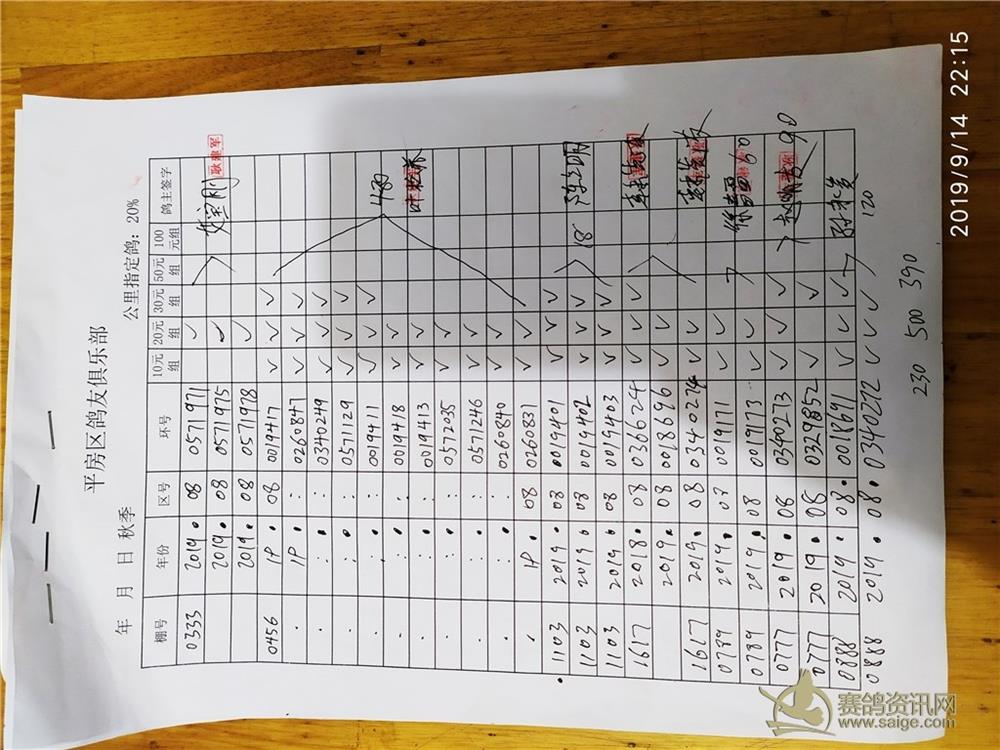 平房区鸽友俱乐部
年 月 日 秋季 公里指定鸽: 20%
棚号 年份 区号 环号 10元组 20元组 30元组 50元组 100元组 鸽主签字
0333 2019. 08 0571971 ✓ 耿建军
2019. 08 0571975 ✓
2019. 08 0571978 ✓
0456 19. 08 0019417 ✓ ✓ ✓
. 19. : 0260847 ✓ ✓ ✓
. : : 0340249 ✓ ✓ ✓
. : : 0571129 ✓ ✓ ✓
. : : 0019411 ✓ ✓ ✓
. : : 0019418 ✓ ✓
. : : 0019413 ✓ ✓
. : : 0572035 ✓ ✓
. : : 0571246 ✓ ✓
. : : 0260840 ✓ ✓
. 19. 08 0260831 ✓ ✓
1103 2019. 08 0019401 ✓ ✓ ✓
1103 2019. 08 0019402 ✓ ✓ ✓ 18
1103 2019. 08 0019403 ✓ ✓ ✓
1617 2018. 08 0366624 ✓ ✓ ✓
2019. 08 0018696 ✓ ✓
1617 2019. 08 0340274 ✓ ✓ ✓
0789 2019. 08 0019171 ✓ ✓ 60
0789 2019. 08 0019173 ✓ ✓
0777 2019. 08 0340273 ✓ ✓ ✓ 90
0777 2019. 08 0329852 ✓ ✓ ✓
0888 2019. 08. 0018691 ✓ ✓ ✓
0888 2019. 08. 0340272 ✓ ✓ ✓ 120
230 500 390
2019/9/14 22:15
赛鸽资讯网
www.saige.com